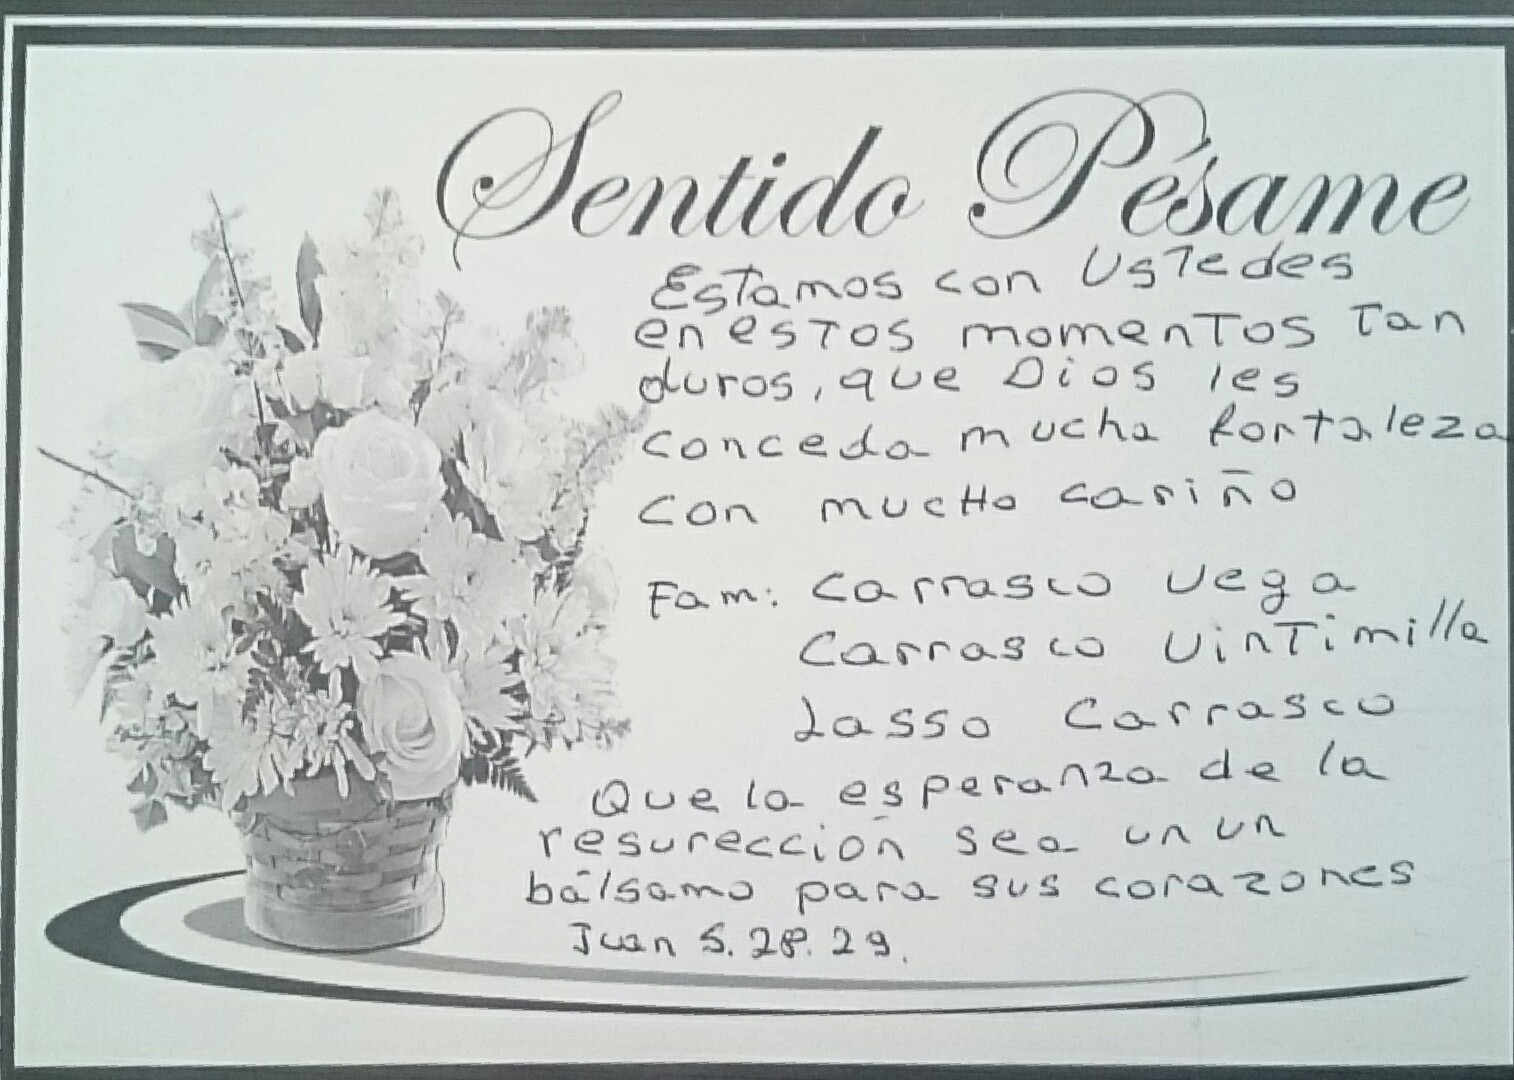 Sentido Pésame
Estamos con Ustedes
en estos momentos tan
duros, que Dios les
conceda mucha fortaleza
con mucho cariño
Fam: Carrasco Vega
Carrasco Vintimilla
Lasso Carrasco
Que la esperanza de la
resurección sea un un
bálsamo para sus corazones
Juan 5. 28. 29.